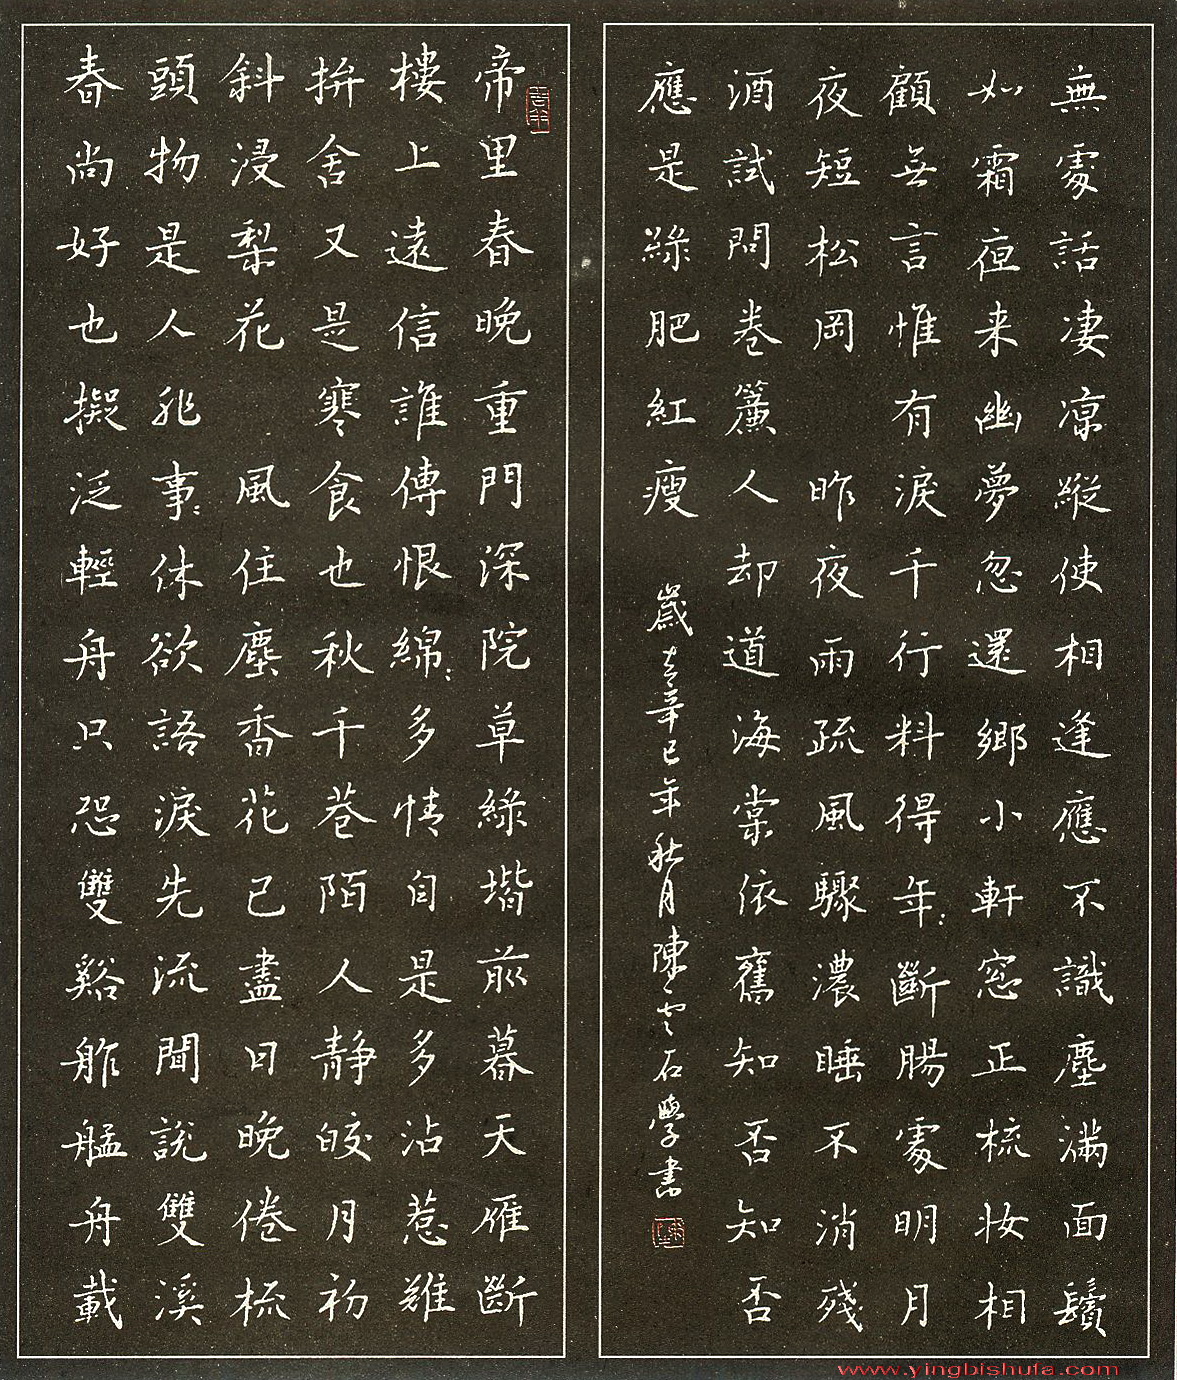 帝里春晚重門深院草綠堦前暮天雁斷
樓上遠信誰傳恨綿〻多情自是多沾惹難
拚舍又是寒食也秋千巷陌人靜皎月初
斜浸梨花 風住塵香花已盡日晚倦梳
頭物是人非事〻休欲語淚先流聞說雙溪
春尚好也擬泛輕舟只恐雙谿舴艋舟載
無處話凄凉縱使相逢應不識塵滿面鬢
如霜夜来幽夢忽還鄉小軒窓正梳妝相
顧無言惟有淚千行料得年〻斷腸處明月
夜短松岡 昨夜雨疏風驟濃睡不消殘
酒試問卷簾人却道海棠依舊知否知否
應是綠肥紅瘦 歲在辛巳年秋月陳雲石學書
www.yingbishufa.com